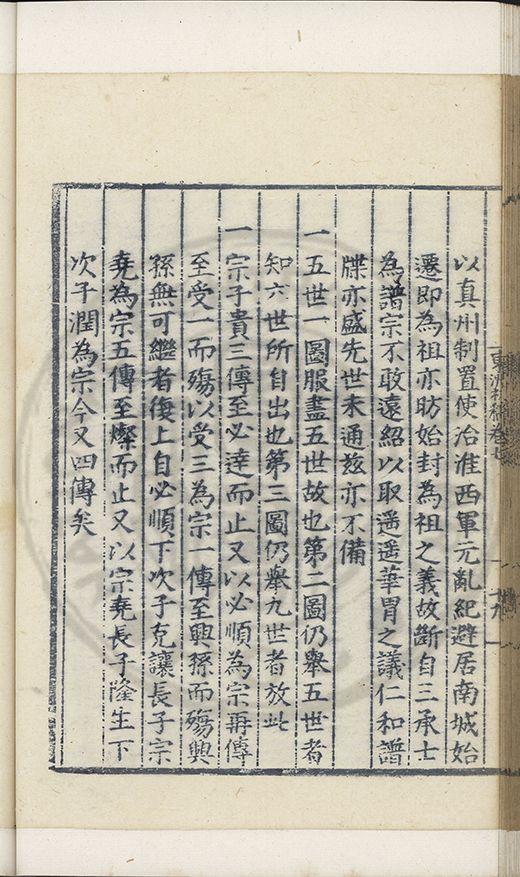 以真州制置使治淮西軍元亂紀避居南城始
遷即為祖亦昉始封為祖之義故斷自三承士
為譜宗不敢遠紹以取遥遥華胄之議仁和譜
牒亦盛先世未通兹亦不備
一五世一圖服盡五世故也第二圖仍舉五世者
知六世所自出也第三圖仍舉九世者放此
一宗子貴三傳至必達而止又以必順為宗再傳
至受一而殤以受三為宗一傳至興孫而殤興
孫無可繼者復上自必順下次子克讓長子宗
堯為宗五傳至燦而止又以宗堯長子隆生下
次子潤為宗今又四傳矣